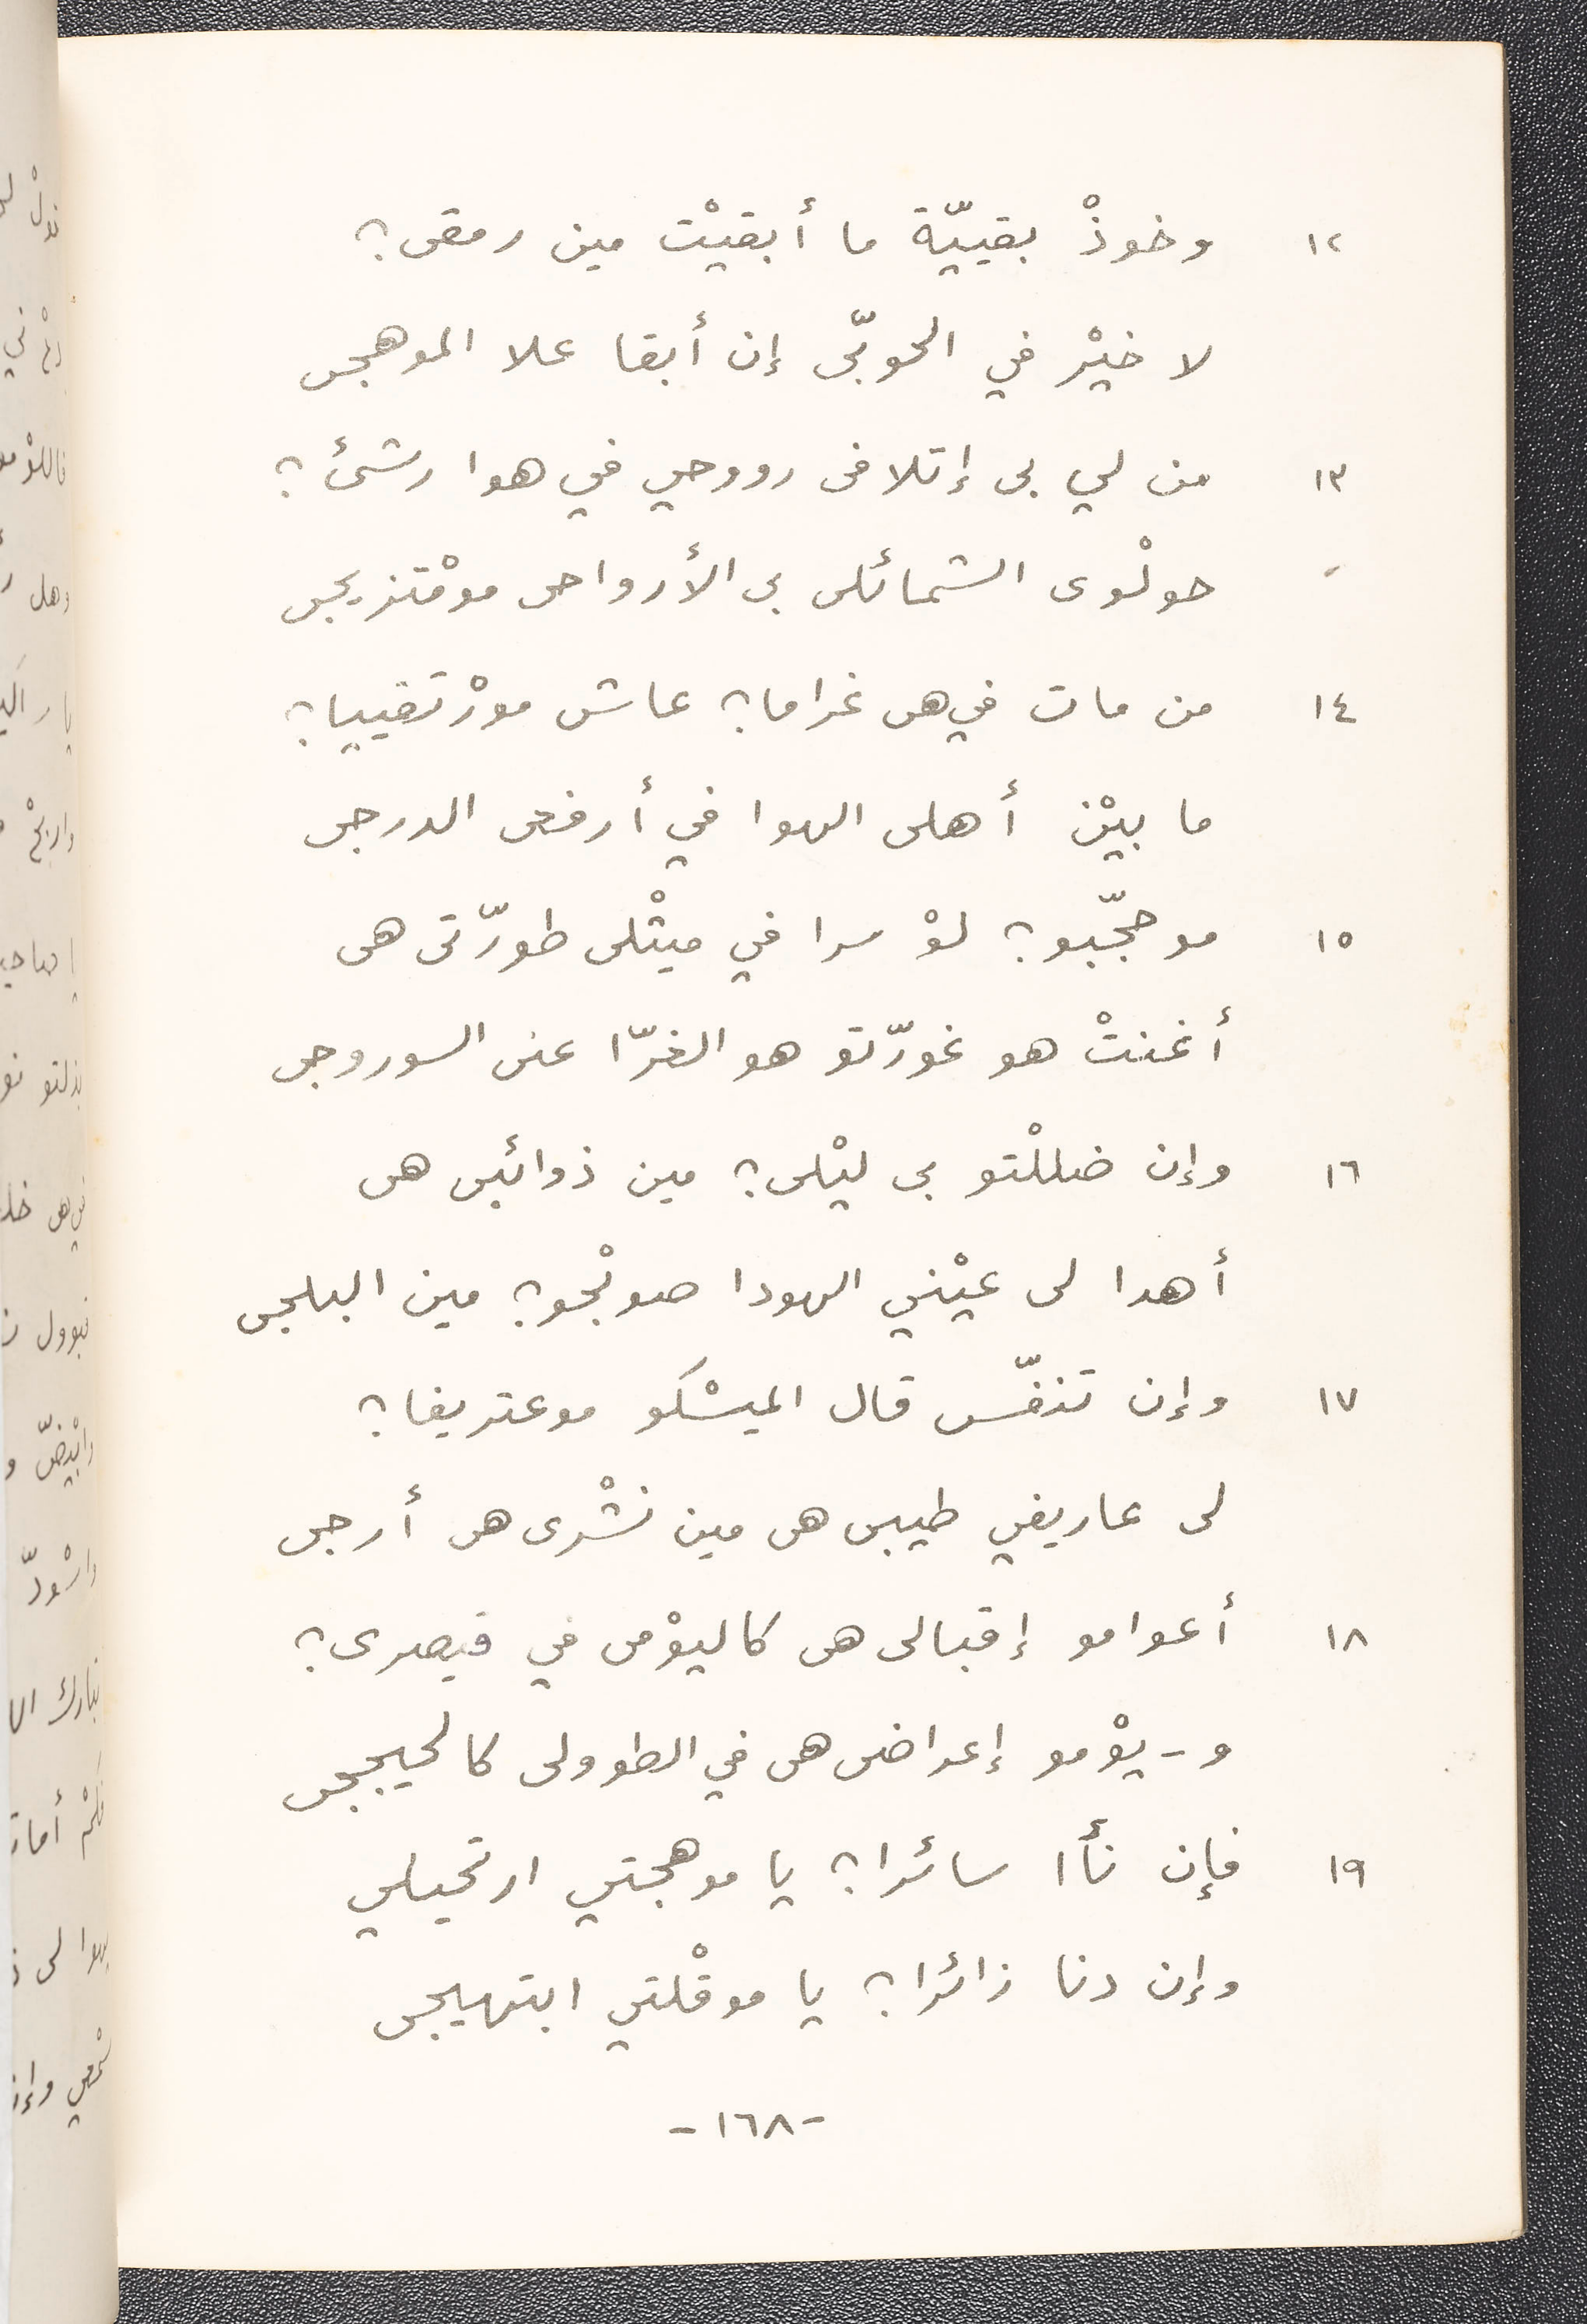 ١٢ وخوذْ بقييّة ما أبقيْت مين رمقى؟
لا خيْر في الحوبّى إن أبقا علا الموهجى
١٣ من لي بى إتلافى رووحي في هوا رشئ؟
حولْوى الشمائلى بى الأرواحى مومْتزيجى
١٤ من مات في هى غراما؟ عاش مورْتقييا؟
ما بيْن أهلى الهوا في أرفعى الدرجى
١٥ موحجّبو؟ لوْ سرا في ميثْلى طورّتى هى
أغنتْ هو غورّتو هو الغرّا عنى السوروجى
١٦ وإن ضللْتو بى ليْلى؟ مين ذوائبى هى
أهدا لى عيْني الهودا صوبْحو؟ مين البلجى
١٧ وإن تنفّس قال الميسْكو موعتريفا؟
لى عاريفي طيبى هى مين نشْرى هى أرجى
١٨ أعوامو إقبالى هى كاليوْمى في قيصرى؟
و - يوْمو إعراضى هى في الطوولى كالحيججى
١٩ فإن نأا سائرا؟ يا موهجتي ارتحيلي
وإن دنا زائرا؟ يا موقْلتي ابتهيجى
-١٦٨-